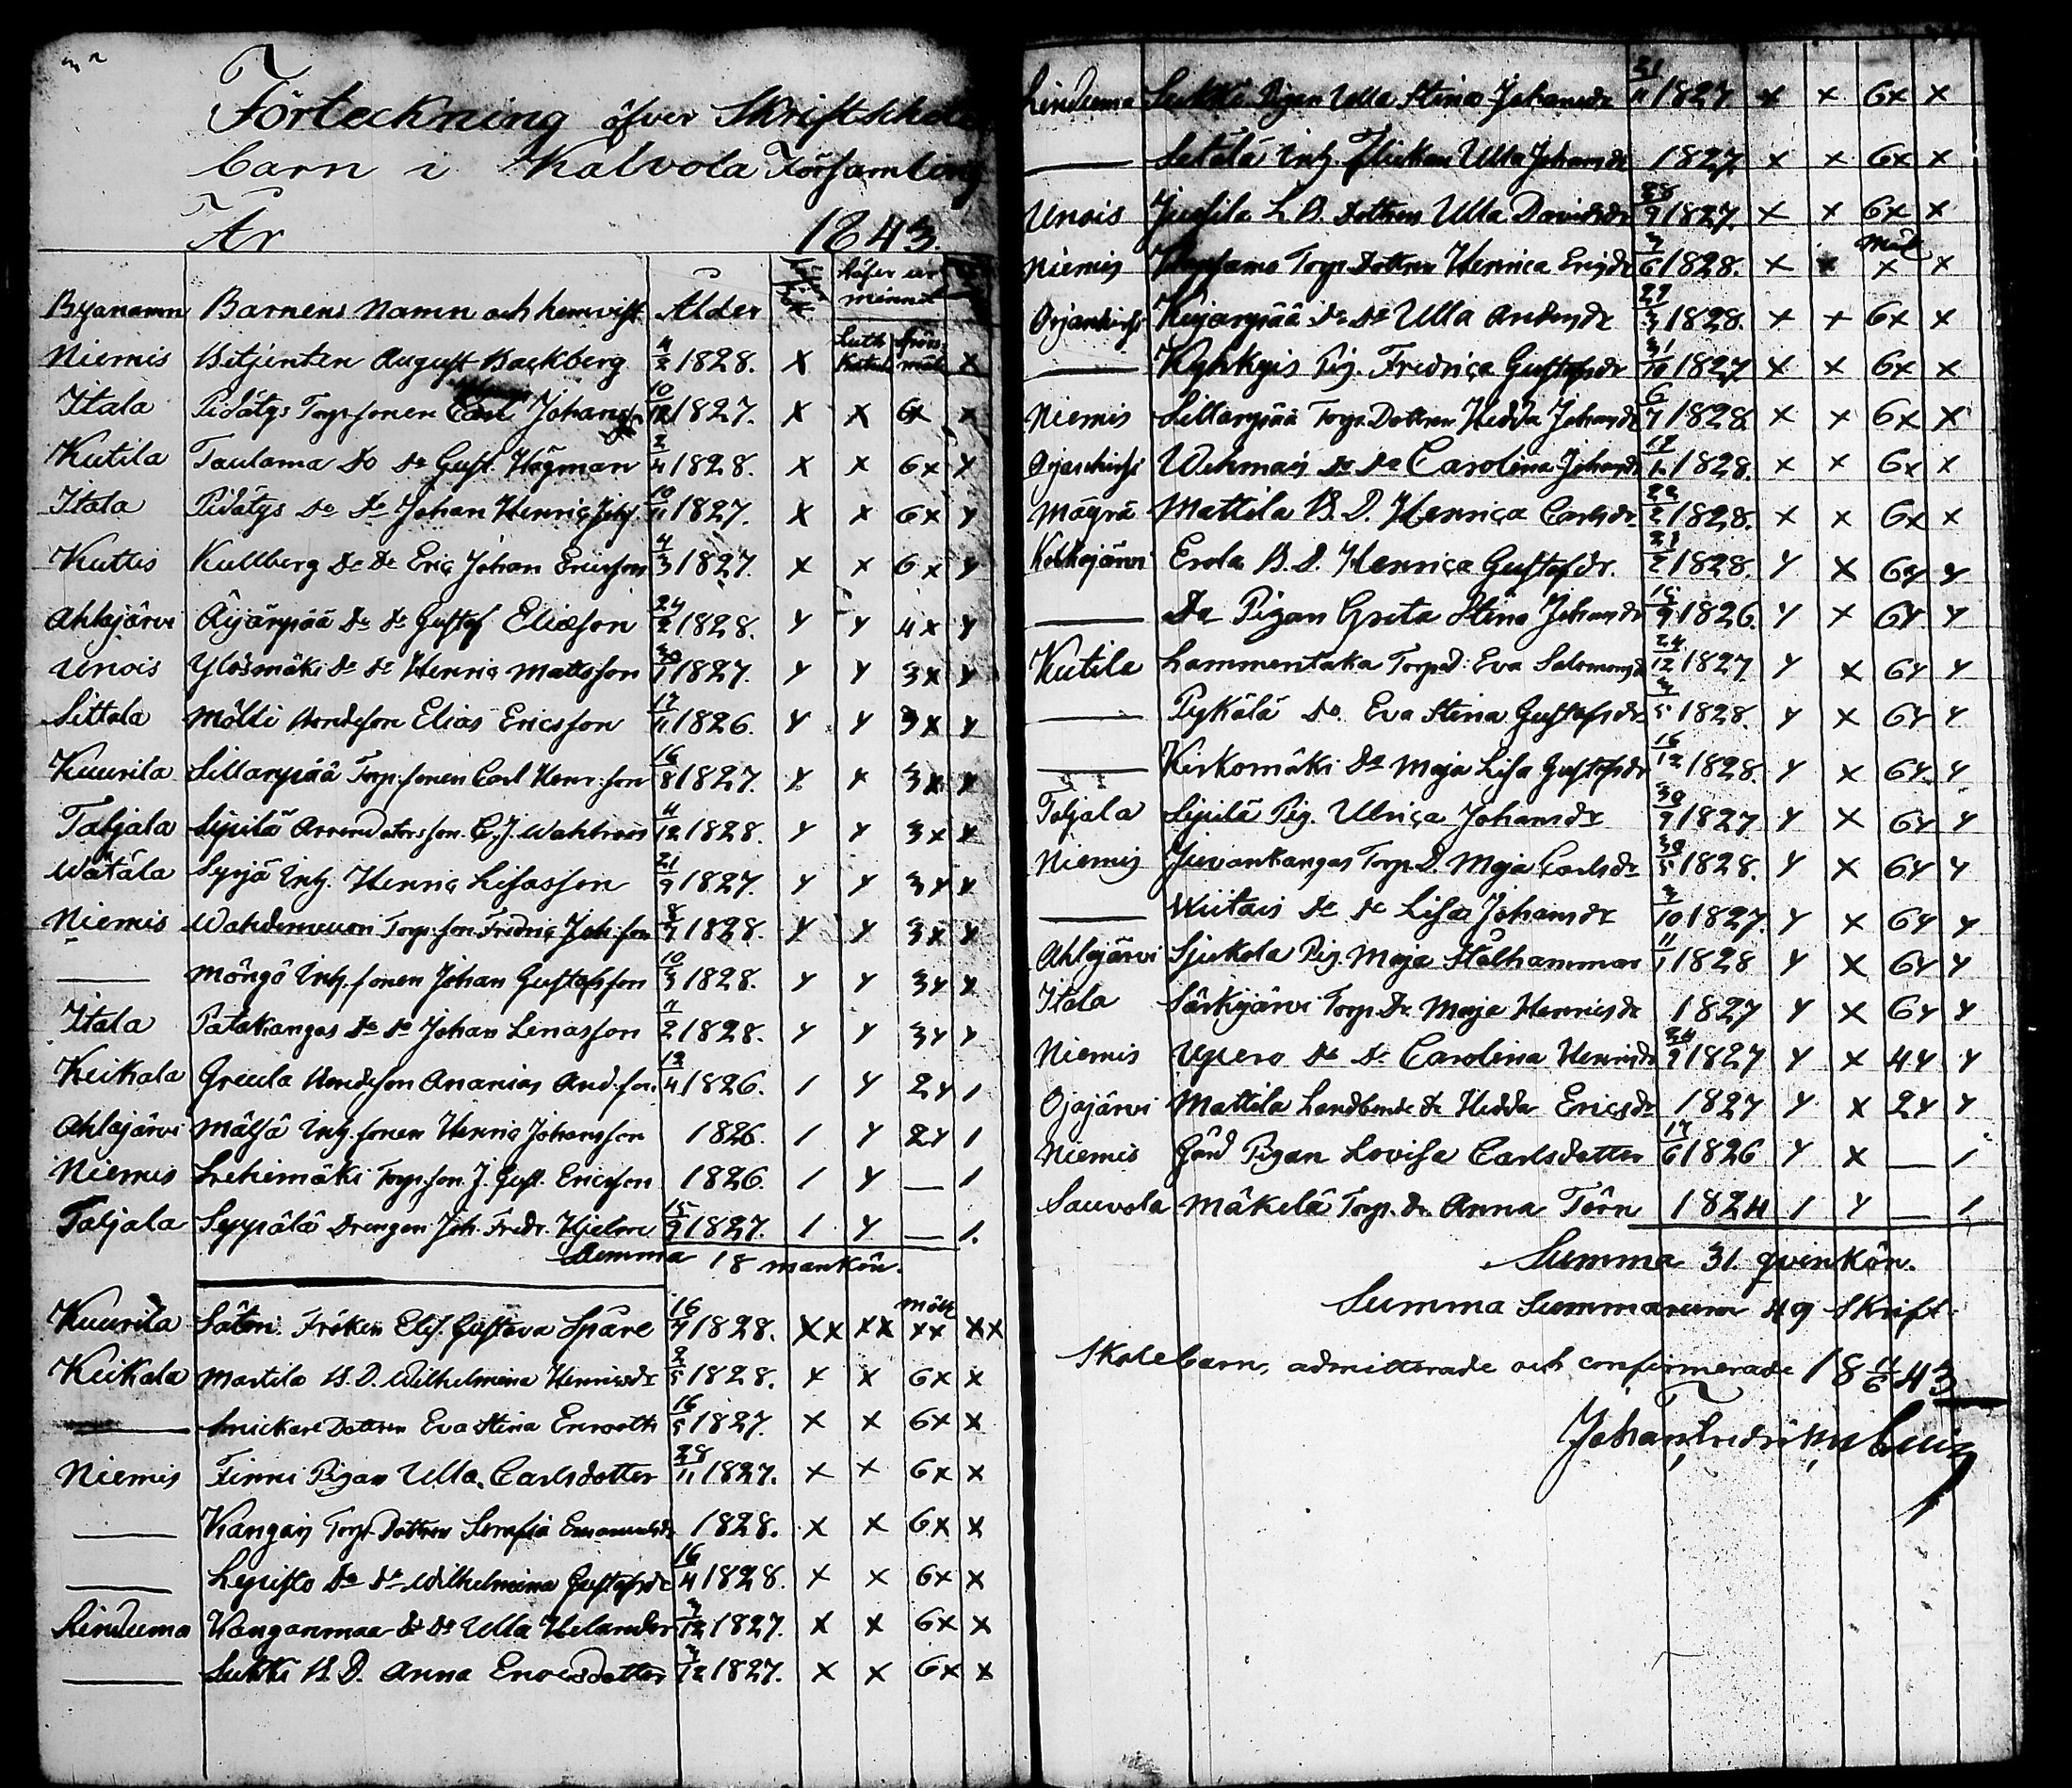 Förteckning öfver Skriftschole
barn i Kalvola Församling
År 1843.
Byanamn Barnens Namn och hemvist Ålder läser ur minnet
Luth. Katek. spörs-mål
Niemis Betjenten August Backberg 4/2 1828. x x
Itala Pidätys Torp.sonen Johan 10/12 1827. x x 6x x
Kutila Taulama Do Do Gust. Hägman 2/4 1828. x x 6x x
Itala Pidätys Do Do Johan Henric 10/11 1827. x x 6x x
Kuttis Kullberg Do Do Eric Johan Ericsson 4/3 1827. x x 6x x
Ahlajärvi Äijänpää Do Do Gustaf Eliæson 24/2 1828. x x 4x x
Unois Ylösmäki Do Do Henric Mattsson 30/1 1827. x x 3x x
Sittala Mölli Bondeson Elias Ericsson 17/11 1826. x x 3x x
Kuurila Sillanpää Torp.sonen Carl Henr:son 16/8 1827. x x 3x x
Taljala Sipilä Arrendatorsson C. J. Wahlroos 4/12 1828. x x 3x x
Wätälä Syrjä Inh. Henric Lisasson 21/9 1827. x x 3x x
Niemis Torp:son Fredric Joh:son 8/7 1828. x x 3x x
— Möngö Inh. sonen Johan Gustafsson 10/3 1828. x x 3x x
Itala Patakangas Do Do Johan Lenasson 7/2 1828. x x 3x x
Keikala Greula Bondeson Ananias And:son 12/4 1826. 1 x 2x 1
Ahlajärvi Mälsä Inh. sonen Henric Johansson 1826. 1 x 2x 1
Niemis Torp.son J. Gust. Ericsson 1826. 1 x — 1
Taljala Seppälä Drengen Joh. Fredr. Hjelm 15/9 1827. 1 x — 1.
Summa 18 mankön.
Kuurila Säteri Fröken Elis. Gustava Spåre 16/7 1828. xx xx xx xx
Keikala Martila B. D. Wilhelmina Henricsdr 2/5 1828. x x 6x x
— Snickare Dottren Eva Stina Enrooth 16/5 1827. x x 6x x
Niemis Finni Pigan Ulla Carlsdotter 28/11 1827. x x 6x x
— Kangais Torp. Dottren Serafia Emanuelsdr 1828. x x 6x x
— Lepistö Do Do Wilhelmina Gustafsdr 16/4 1828. x x 6x x
Linduma Wanganmaa Do Do Ulla Helander 3/12 1827. x x 6x x
— Sukki B. D. Anna Enocsdotter 3/12 1827. x x 6x x
Linduma Sukki Pigan Ulla Stina Johansdr 21/11 1827 x x 6x x
— Setälä Inh. Flickan Ulla Johansdr 1827. x x 6x x
Unois Jussila L. B. Dottren Ulla Davidsdr 28/9 1827. x x 6x x
Niemis Torp. Dottren Henrica Ericsdr 3/6 1828. x x x x
Orjanhirsi Do Do Ulla Andersdr 29/3 1828. x x 6x x
— Kyhkyis Pig. Fredrica Gustafsdr 31/10 1827 x x 6x x
Niemis Sillanpää Torp. Dottren Hedda Johansdr 6/7 1828 x x 6x x
Orjanhirsi Wehmais Do Do Carolina Johansdr 12/12 1828. x x 6x x
Mäyrä Mattila B. D. Henrica Carlsdr 22/2 1828. x x 6x x
Kotkajärvi Erola B. D. Henrica Gustafsdr. 21/2 1828. x x 6x x
— Do Pigan Greta Stina Johansdr 15/9 1826. x x 6x x
Kutila Lammentaka Torp.d: Eva Salomonsd 24/12 1827 x x 6x x
— Pykälä Do. Eva Stina Gustafsdr 3/5 1828. x x 6x x
— Kirkomäki Do Maja Lisa Gustafsdr 16/12 1828. x x 6x x
Taljala Sipilä Pig. Ulrica Johansdr 30/9 1827 x x 6x x
Niemis Juvankangas Torp. D. Maja Carlsdr 30/5 1828. x x 6x x
— Wiitais Do Do Lisa Johansdr 3/10 1827. x x 6x x
Ahlajärvi Sjukola Pig. Maja Stålhammar 11/1 1828 x x 6x x
Itala Särkijärvi Torp. Dr. Maja Henricsdr 1827 x x 6x x
Niemis Upero Do Do Carolina Henricsdr 24/9 1827 x x 4x x
Ojajärvi Mattila Landbonde Dr Hedda Ericsdr 1827 x x 2x x
Niemis Pigan Lovisa Carlsdotter 17/6 1826 x x — 1
Sauvola Mäkelä Torp. Dr. Anna Törn 1824 1 x — 1
Summa 31. qvinkön.
Summa Summarum 49 Skrift-
Skolebarn, admitterade och confirmerade 18 11/6 43